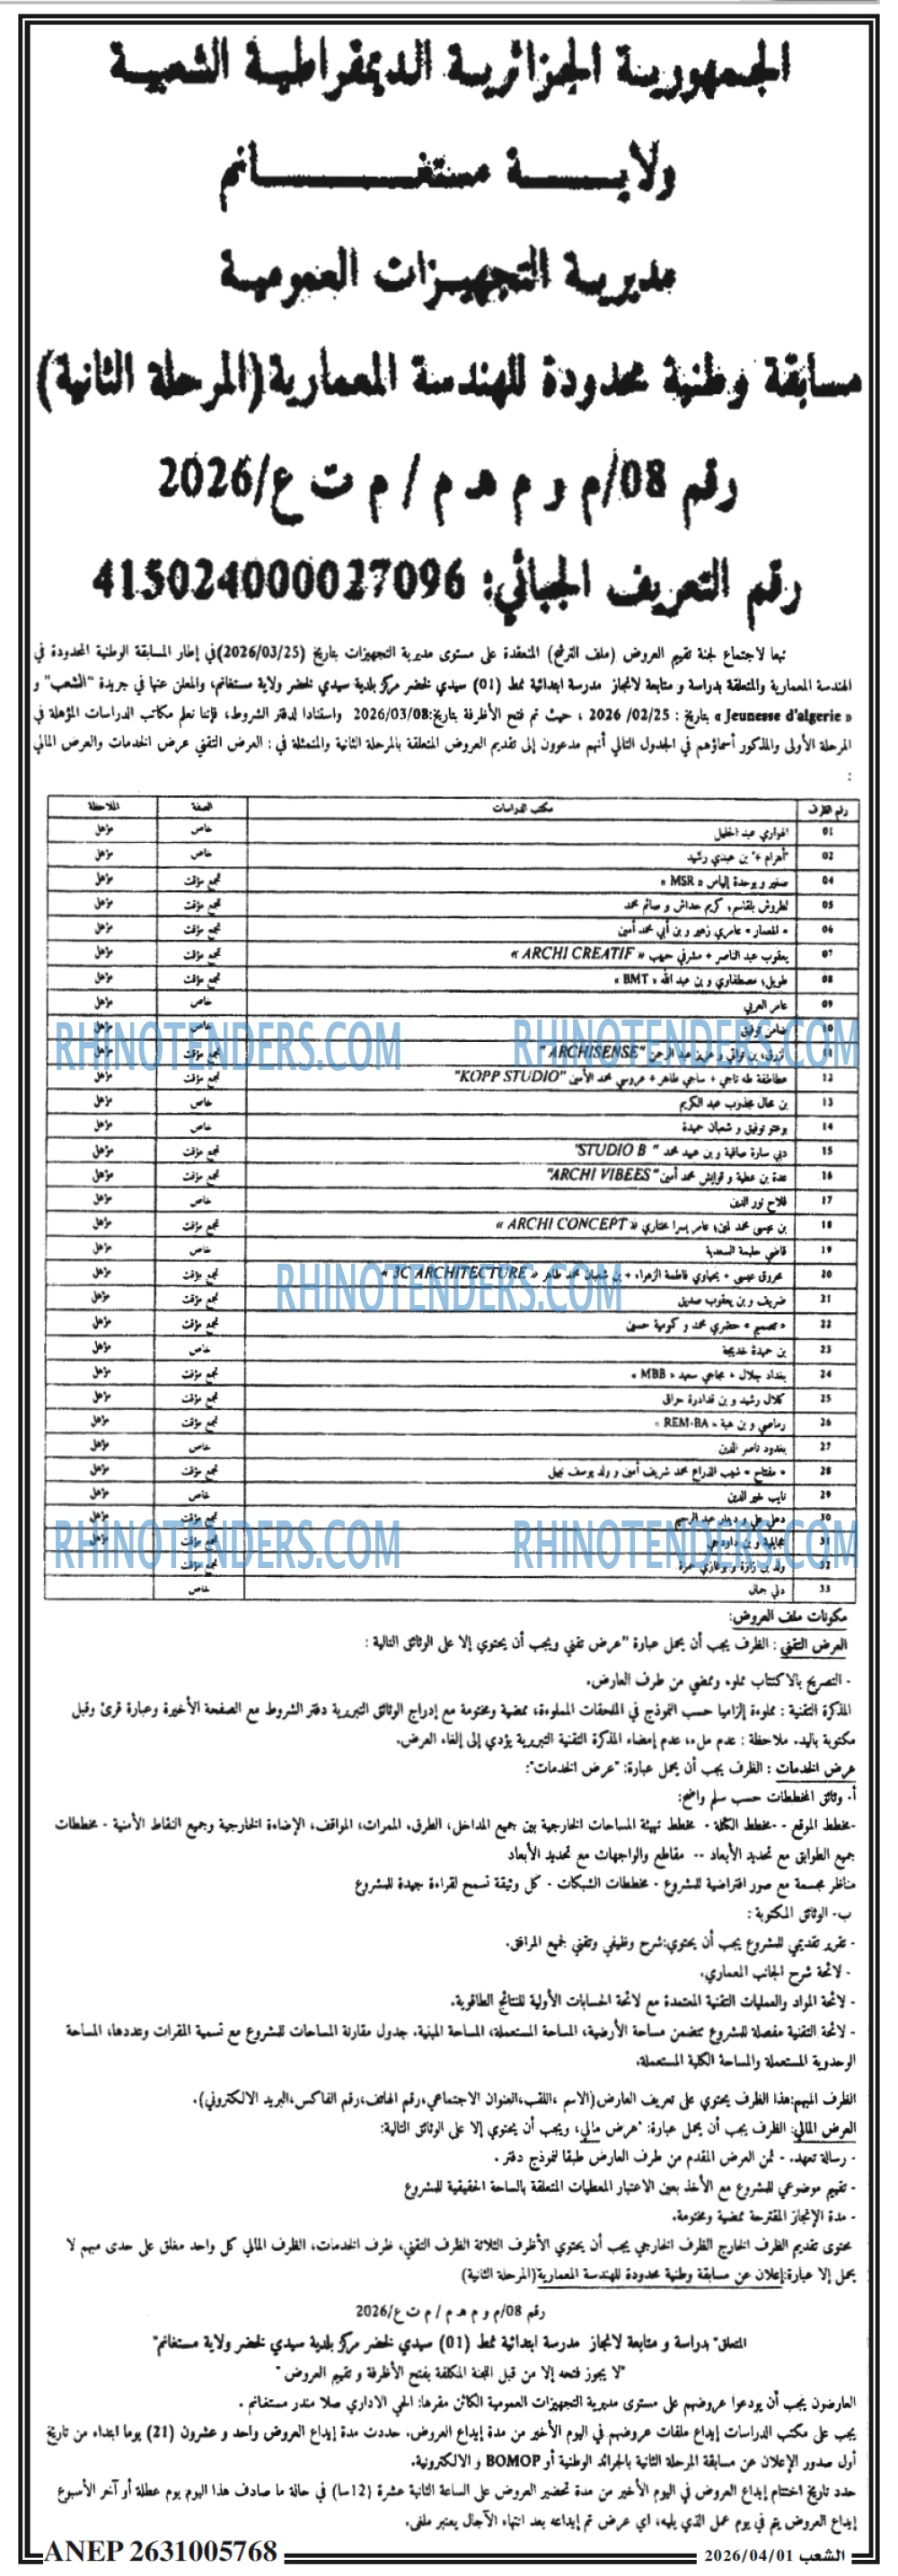 الجمهورية الجزائرية الديمقراطية الشعبية
ولاية مستغانم
مديرية التجهيزات العمومية
مسابقة وطنية محدودة للهندسة المعمارية (المرحلة الثانية)
رقم 08/م و م هـ م / م ت ع/2026
رقم التعريف الجبائي: 415024000027096
تبعا لاجتماع لجنة تقييم العروض (ملف الترشح) المنعقدة على مستوى مديرية التجهيزات بتاريخ (2026/03/25) في إطار المسابقة الوطنية المحدودة في
الهندسة المعمارية والمتعلقة بدراسة و متابعة لانجاز مدرسة ابتدائية نمط (01) سيدي لخضر مركز بلدية سيدي لخضر ولاية مستغانم، والمعلن عنها في جريدة "الشعب" و
« Jeunesse d'algerie » بتاريخ : 2026 /02/25 ، حيث تم فتح الأظرفة بتاريخ:2026/03/08 واستنادا لدفتر الشروط، فإننا نعلم مكاتب الدراسات المؤهلة في
المرحلة الأولى والمذكور أسماؤهم في الجدول التالي أنهم مدعوون إلى تقديم العروض المتعلقة بالمرحلة الثانية والمتمثلة في : العرض التقني عرض الخدمات والعرض المالي
:
رقم الظرف مكتب الدراسات الصفة الملاحظة
01 الهواري عبد الجليل خاص مؤهل
02 "أهرام +" بن عبدي رشيد خاص مؤهل
04 صغير و بوحدة إلياس « MSR » تجمع مؤقت مؤهل
05 لطروش بلقاسم، كريم حداش و صائم محمد تجمع مؤقت مؤهل
06 « المعمار » عامري زهير و بن أبي محمد أمين تجمع مؤقت مؤهل
07 يعقوب عبد الناصر + مشرفي حبيب « ARCHI CREATIF » تجمع مؤقت مؤهل
08 طويل، مصطفاوي و بن عبد الله « BMT » تجمع مؤقت مؤهل
09 عامر العربي خاص مؤهل
10 ضامن توفيق خاص مؤهل
11 بن تواتي و عزيز عبد الرحمن "ARCHISENSE" تجمع مؤقت مؤهل
12 عطاطفة طه ناجي + ساجي طاهر + عروسي محمد الأمين "KOPP STUDIO" تجمع مؤقت مؤهل
13 بن محال مجذوب عبد الكريم خاص مؤهل
14 بوعتو توفيق و شعبان حميدة خاص مؤهل
15 دبي سارة صافية و بن عبيد محمد " STUDIO B" تجمع مؤقت مؤهل
16 عدة بن عطية و قوايش محمد أمين "ARCHI VIBEES" تجمع مؤقت مؤهل
17 فلاح نور الدين خاص مؤهل
18 بن عيسى محمد لمين، عامر يسرا مختاري « ARCHI CONCEPT » تجمع مؤقت مؤهل
19 قاضي حليمة السعدية خاص مؤهل
20 محروق عيسى + يحياوي فاطمة الزهراء + بن شعبان محمد طاهر « 3C ARCHITECTURE » تجمع مؤقت مؤهل
21 ضريف و بن يعقوب صديق تجمع مؤقت مؤهل
22 « تصميم » حضري محمد و كومية حسين تجمع مؤقت مؤهل
23 بن حميدة خديجة خاص مؤهل
24 بغداد جلال + مجاجي سعيد « MBB » تجمع مؤقت مؤهل
25 كلال رشيد و بن قدادرة تجمع مؤقت مؤهل
26 رماصي و بن هبة « REM-BA » تجمع مؤقت مؤهل
27 بغدود ناصر الدين خاص مؤهل
28 « مفتاح » شيب الذراع محمد شريف أمين و ولد يوسف نبيل تجمع مؤقت مؤهل
29 نايب خير الدين خاص مؤهل
30 دهل علي و عبد الرحيم تجمع مؤقت مؤهل
31 و بن داودجي تجمع مؤقت مؤهل
32 ولد بن زازة و بوغازي حمزة تجمع مؤقت
33 دلي جمال خاص
مكونات ملف العروض:
العرض التقني : الظرف يجب أن يحمل عبارة "عرض تقني ويجب أن يحتوي إلا على الوثائق التالية :
- التصريح بالاكتتاب مملوء وممضي من طرف العارض.
المذكرة التقنية : مملوءة إلزاميا حسب النموذج في الملحقات المملوءة، ممضية ومختومة مع إدراج الوثائق التبريرية دفتر الشروط مع الصفحة الأخيرة وعبارة قرئ وقبل
مكتوبة باليد. ملاحظة : عدم ملء، عدم إمضاء المذكرة التقنية التبريرية يؤدي إلى إلغاء العرض.
عرض الخدمات : الظرف يجب أن يحمل عبارة: "عرض الخدمات":
أ. وثائق المخططات حسب سلم واضح:
-مخطط الموقع - -مخطط الكتلة - مخطط تهيئة المساحات الخارجية بين جميع المداخل، الطرق، الممرات، المواقف، الإضاءة الخارجية وجميع النقاط الأمنية - مخططات
جميع الطوابق مع تحديد الأبعاد -- مقاطع والواجهات مع تحديد الأبعاد
مناظر مجسمة مع صور افتراضية للمشروع - مخططات الشبكات - كل وثيقة تسمح لقراءة جيدة للمشروع
ب- الوثائق المكتوبة :
- تقرير تقديمي للمشروع يجب أن يحتوي:شرح وظيفي وتقني لجميع المرافق.
- لائحة شرح الجانب المعماري.
- لائحة المواد والعمليات التقنية المعتمدة مع لائحة الحسابات الأولية للنتائج الطاقوية.
- لائحة التقنية مفصلة للمشروع تتضمن مساحة الأرضية، المساحة المستعملة، المساحة المبنية. جدول مقارنة المساحات للمشروع مع تسمية المقرات وتعددها، المساحة
الوحدوية المستعملة والمساحة الكلية المستعملة.
الظرف المبهم:هذا الظرف يحتوي على تعريف العارض(الاسم ،اللقب،العنوان الاجتماعي،رقم الهاتف،رقم الفاكس،البريد الالكتروني).
العرض المالي: الظرف يجب أن يحمل عبارة: "عرض مالي، ويجب أن يحتوي إلا على الوثائق التالية:
- رسالة تعهد. - ثمن العرض المقدم من طرف العارض طبقا لنموذج دفتر .
- تقييم موضوعي للمشروع مع الأخذ بعين الاعتبار المعطيات المتعلقة بالساحة الحقيقية للمشروع
- مدة الإنجاز المقترحة ممضية ومختومة.
محتوى تقديم الظرف الخارج الظرف الخارجي يجب أن يحتوي الأظرف الثلاثة الظرف التقني، ظرف الخدمات، الظرف المالي كل واحد مغلق على حدى مبهم لا
يحمل إلا عبارة:إعلان عن مسابقة وطنية محدودة للهندسة المعمارية(المرحلة الثانية)
رقم 08/م و م هـ م / م ت ع/2026
المتعلق" بدراسة و متابعة لانجاز مدرسة ابتدائية نمط (01) سيدي لخضر مركز بلدية سيدي لخضر ولاية مستغانم"
"لا يجوز فتحه إلا من قبل اللجنة المكلفة بفتح الأظرفة و تقييم العروض "
العارضون يجب أن يودعوا عروضهم على مستوى مديرية التجهيزات العمومية الكائن مقرها: الحي الاداري صلامندر مستغانم .
يجب على مكتب الدراسات إيداع ملفات عروضهم في اليوم الأخير من مدة إيداع العروض. حددت مدة إيداع العروض واحد و عشرون (21) يوما ابتداء من تاريخ
أول صدور الإعلان عن مسابقة المرحلة الثانية بالجرائد الوطنية أو BOMOP و الالكترونية.
حدد تاريخ اختتام إيداع العروض في اليوم الأخير من مدة تحضير العروض على الساعة الثانية عشرة (12سا) في حالة ما صادف هذا اليوم يوم عطلة أو آخر الأسبوع
إيداع العروض يتم في يوم عمل الذي يليه، اي عرض تم إيداعه بعد انتهاء الآجال يعتبر ملغى.
ANEP 2631005768
الشعب 2026/04/01
RHINOTENDERS.COM
RHINOTENDERS.COM
RHINOTENDERS.COM
RHINOTENDERS.COM
RHINOTENDERS.COM